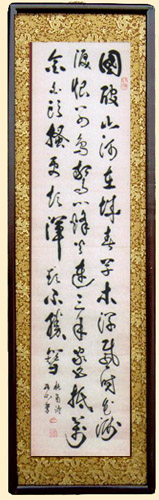 國破山河在城春草木深感時花濺
淚恨別鳥驚心烽火連三月家書抵萬
金白頭搔更短渾欲不勝簪